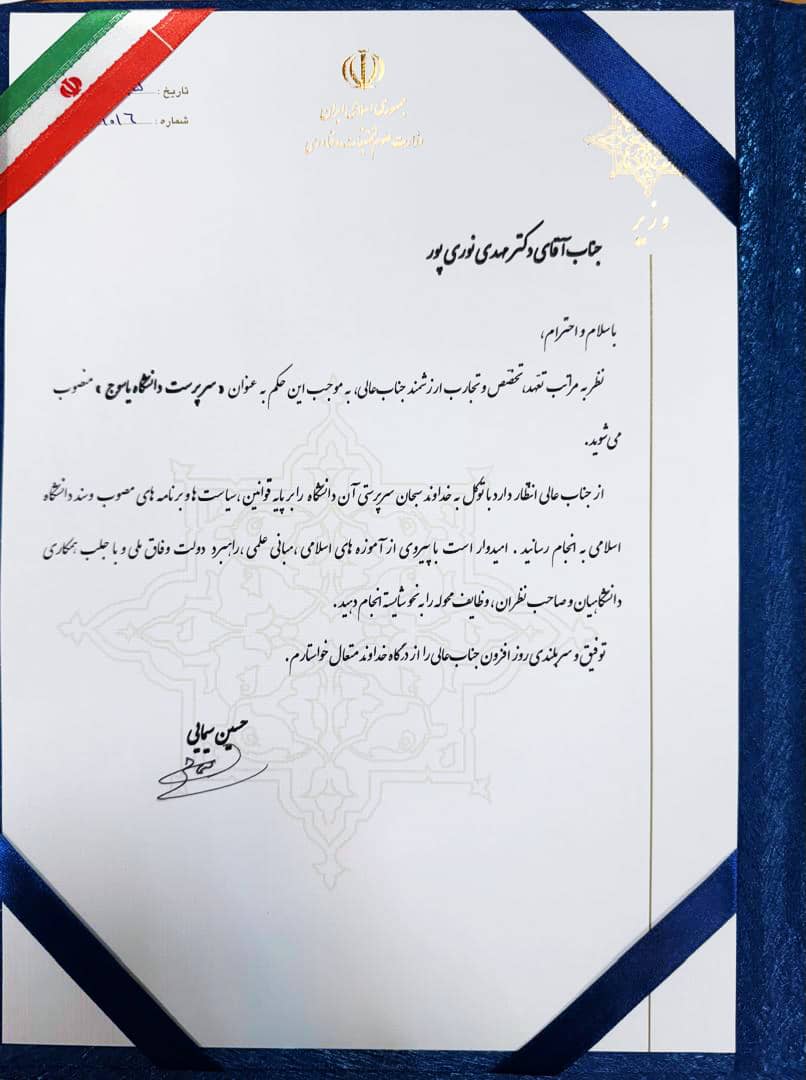 جمهوری اسلامی ایران
وزارت علوم، تحقیقات و فناوری
تاریخ :
شماره :
وزیر
جناب آقای دکتر مهدی نوری پور
باسلام و احترام،
نظر به مراتب تعهد، تخصص و تجارب ارزشمند جناب عالی، به موجب این حکم به عنوان « سرپرست دانشگاه یاسوج » منصوب
می شوید.
از جناب عالی انتظار دارد با توکل به خداوند سبحان سرپرستی آن دانشگاه را بر پایه قوانین ،سیاست ها و برنامه های مصوب وسند دانشگاه
اسلامی به انجام رسانید . امیدوار است با پیروی از آموزه های اسلامی ،مبانی علمی ،راهبرد دولت وفاق ملی و با جلب همکاری
دانشگاهیان و صاحب نظران، وظایف محوله را به نحو شایسته انجام دهید.
توفیق و سربلندی روز افزون جناب عالی را از درگاه خداوند متعال خواستارم.
حسین سیمایی